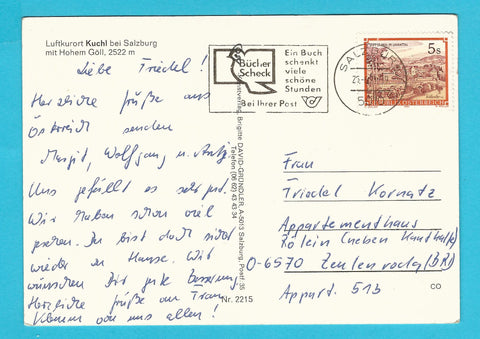 Luftkurort Kuchl bei Salzburg
mit Hohem Göll, 2522 m
Liebe Friedel!
Herzliche Grüße aus
Österreich senden
Margit, Wolfgang u.
Uns gefällt es sehr gut.
Wir haben schon viel
gesehen. Du bist doch sicher
wieder zu Hause. Wir
wünschen Dir gute Besserung
Herzliche Grüße an Frau
von uns allen!
Bücher
Scheck
Ein Buch
schenkt
viele
schöne
Stunden
Bei Ihrer Post
SALZBURG
5s
REPUBLIK ÖSTERREICH
Brigitte DAVID-GRÜNDLER, A-5013 Salzburg, Postf. 35
Telefon (06 62) 43 43 34
Nr. 2215
Frau
Friedel Kornatz
Appartementhaus
Rölein (neben Kaufhalle)
O-6570 Zeulenroda (BRD)
Appart. 513
CO